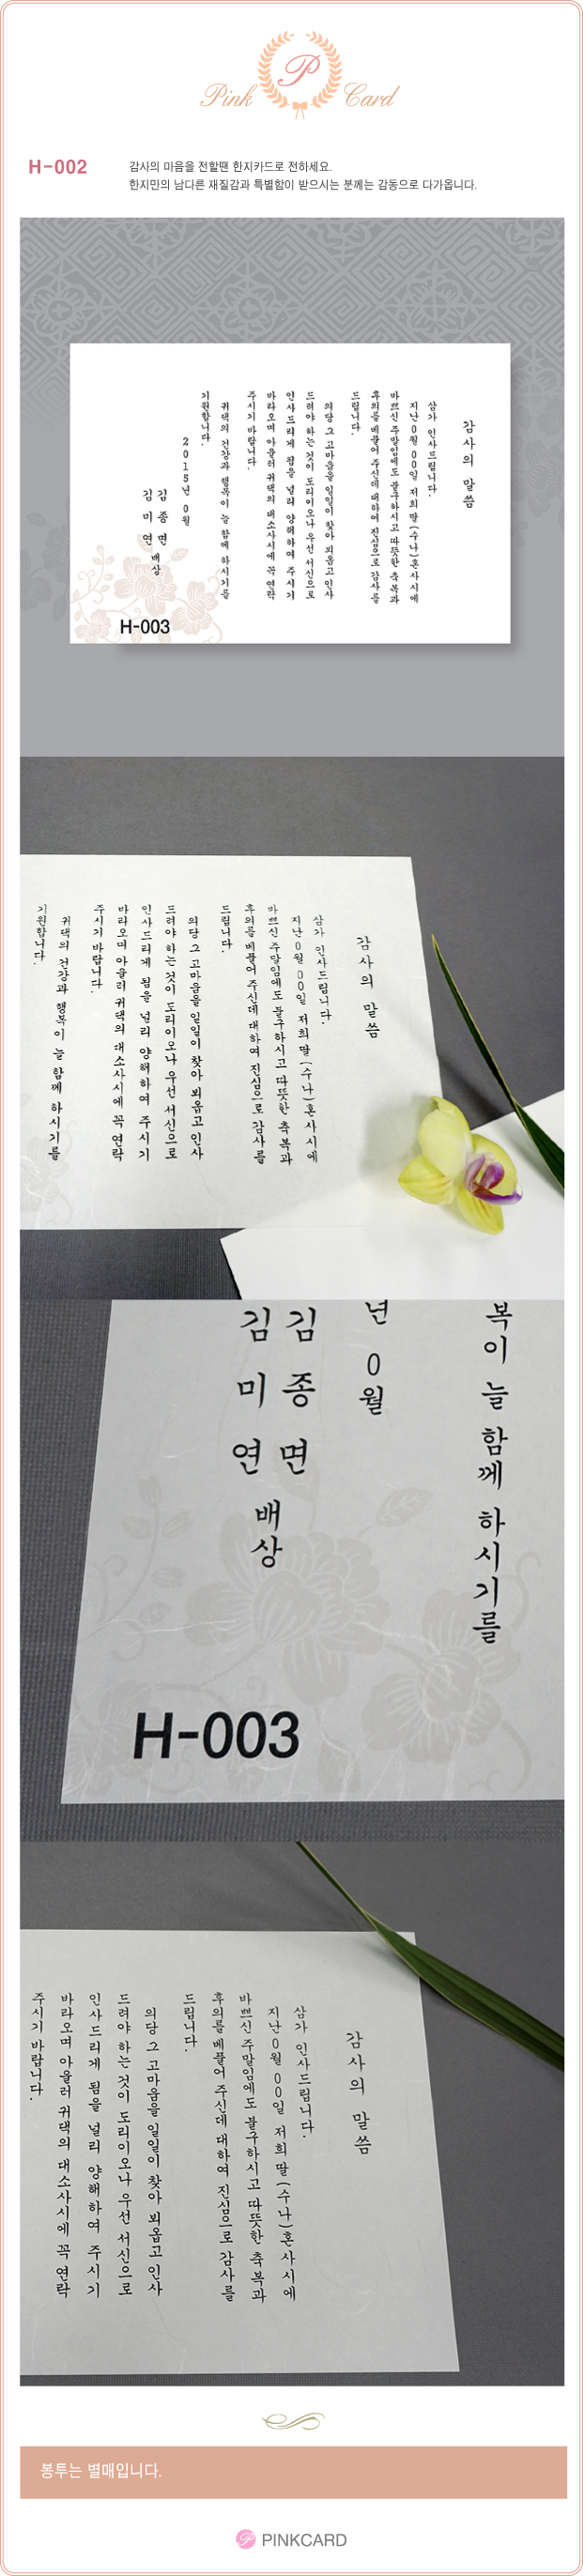 Pink P Card
H-002
감사의 마음을 전할땐 한지카드로 전하세요.
한지만의 남다른 재질감과 특별함이 받으시는 분께는 감동으로 다가옵니다.
감사의 말씀
삼가 인사드립니다.
지난 0월 00일 저희 딸(수나)혼사시에
바쁘신 주말임에도 불구하시고 따뜻한 축복과
후의를 베풀어 주신데 대하여 진심으로 감사를
드립니다.
의당 그 고마음을 일일이 찾아 뵈옵고 인사
드려야 하는 것이 도리이오나 우선 서신으로
인사드리게 됨을 널리 양해하여 주시기
바라오며 아울러 귀댁의 대소사시에 꼭 연락
주시기 바랍니다.
귀댁의 건강과 행복이 늘 함께 하시기를
기원합니다.
2015년 0월
김종면
김미연
배상
H-003
감사의 말씀
삼가 인사드립니다.
지난 0월 00일 저희 딸(수나)혼사시에
바쁘신 주말임에도 불구하시고 따뜻한 축복과
후의를 베풀어 주신데 대하여 진심으로 감사를
드립니다.
의당 그 고마음을 일일이 찾아 뵈옵고 인사
드려야 하는 것이 도리이오나 우선 서신으로
인사드리게 됨을 널리 양해하여 주시기
바라오며 아울러 귀댁의 대소사시에 꼭 연락
주시기 바랍니다.
귀댁의 건강과 행복이 늘 함께 하시기를
기원합니다.
복이 늘 함께 하시기를
년 0월
김종면
김미연
배상
H-003
감사의 말씀
삼가 인사드립니다.
지난 0월 00일 저희 딸(수나)혼사시에
바쁘신 주말임에도 불구하시고 따뜻한 축복과
후의를 베풀어 주신데 대하여 진심으로 감사를
드립니다.
의당 그 고마음을 일일이 찾아 뵈옵고 인사
드려야 하는 것이 도리이오나 우선 서신으로
인사드리게 됨을 널리 양해하여 주시기
바라오며 아울러 귀댁의 대소사시에 꼭 연락
주시기 바랍니다.
봉투는 별매입니다.
P PINKCARD